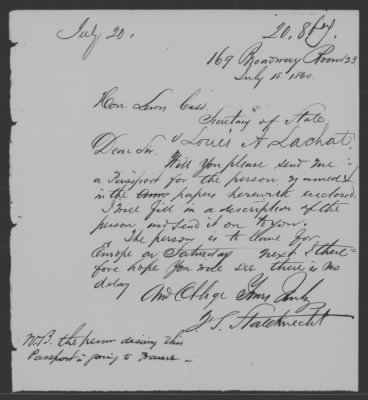 July 20.
20. July.
169 Broadway Room 23
July 18 1860.
Hon. Lewis Cass.
Secretary of State
"Louis A. Lachat.
Dear Sir.
Will You please send me
a Passport for the person named
in the papers herewith enclosed.
I will fill in a description of the
person, and send it on to you.
The person is to leave for
Europe on Saturday next I there-
fore hope You will see there is no
delay
And Oblige Yours Truly
N.B. the person desiring this
Passport is going to France —